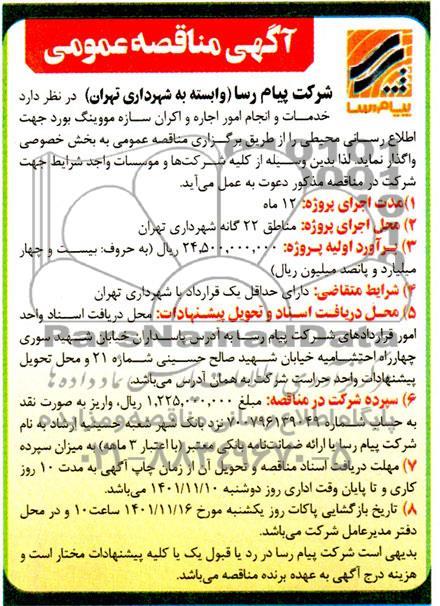 آگهی مناقصه عمومی
پیام‌رسا
شرکت پیام رسا (وابسته به شهرداری تهران) در نظر دارد
خدمات و انجام امور اجاره و اکران سازه مووینگ بورد جهت
اطلاع رسانی محیطی را از طریق برگزاری مناقصه عمومی به بخش خصوصی
واگذار نماید. لذا بدین وسیله از کلیه شرکت‌ها و موسسات واجد شرایط جهت
شرکت در مناقصه مذکور دعوت به عمل می‌آید.
۱) مدت اجرای پروژه: ۱۲ ماه
۲) محل اجرای پروژه: مناطق ۲۲ گانه شهرداری تهران
۳) برآورد اولیه پروژه: ۲۴,۵۰۰,۰۰۰,۰۰۰ ریال (به حروف: بیست و چهار
میلیارد و پانصد میلیون ریال)
۴) شرایط متقاضی: دارای حداقل یک قرارداد با شهرداری تهران
۵) محل دریافت اسناد و تحویل پیشنهادات: محل دریافت اسناد واحد
امور قراردادهای شرکت پیام رسا به آدرس پاسداران خیابان شهید سوری
چهارراه احتشامیه خیابان شهید صالح حسینی شماره ۲۱ و محل تحویل
پیشنهادات واحد حراست شرکت به همان آدرس می‌باشد.
۶) سپرده شرکت در مناقصه: مبلغ ۱,۲۲۵,۰۰۰,۰۰۰ ریال، واریز به صورت نقد
به حساب شماره ۷۰۰۷۹۶۱۳۱۰۴۹ نزد بانک شهر شعبه حسینیه ارشاد به نام
شرکت پیام رسا یا ارائه ضمانتنامه بانکی معتبر (با اعتبار ۳ ماهه) به میزان سپرده
۷) مهلت دریافت اسناد مناقصه و تحویل آن از زمان چاپ آگهی به مدت ۱۰ روز
کاری و تا پایان وقت اداری روز دوشنبه ۱۴۰۱/۱۱/۱۰ می‌باشد.
۸) تاریخ بازگشایی پاکات روز یکشنبه مورخ ۱۴۰۱/۱۱/۱۶ ساعت ۱۰ و در محل
دفتر مدیرعامل شرکت می‌باشد.
بدیهی است شرکت پیام رسا در رد یا قبول یک یا کلیه پیشنهادات مختار است و
هزینه درج آگهی به عهده برنده مناقصه می‌باشد.
پایگاه اطلاع رسانی مناقصه و مزایده
۰۲۱-۸۸۳۴۹۶۷۰-۵